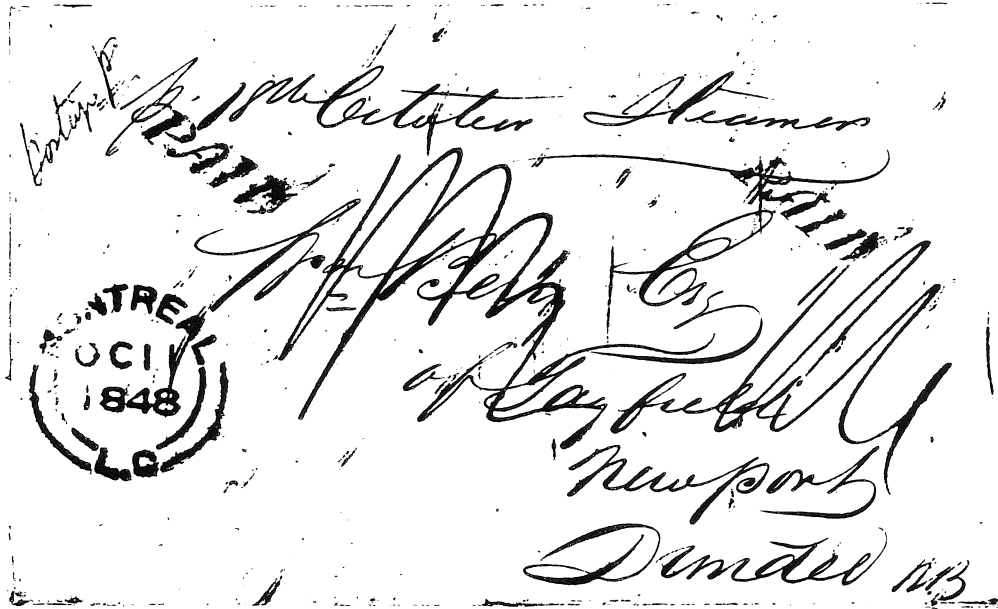 p. 18th October Steamer
PAID
PAID
Wm Bell Esq
of Tayfield
Newport
Dundee
N.B
MONTREAL
OC 11
1848
L.C